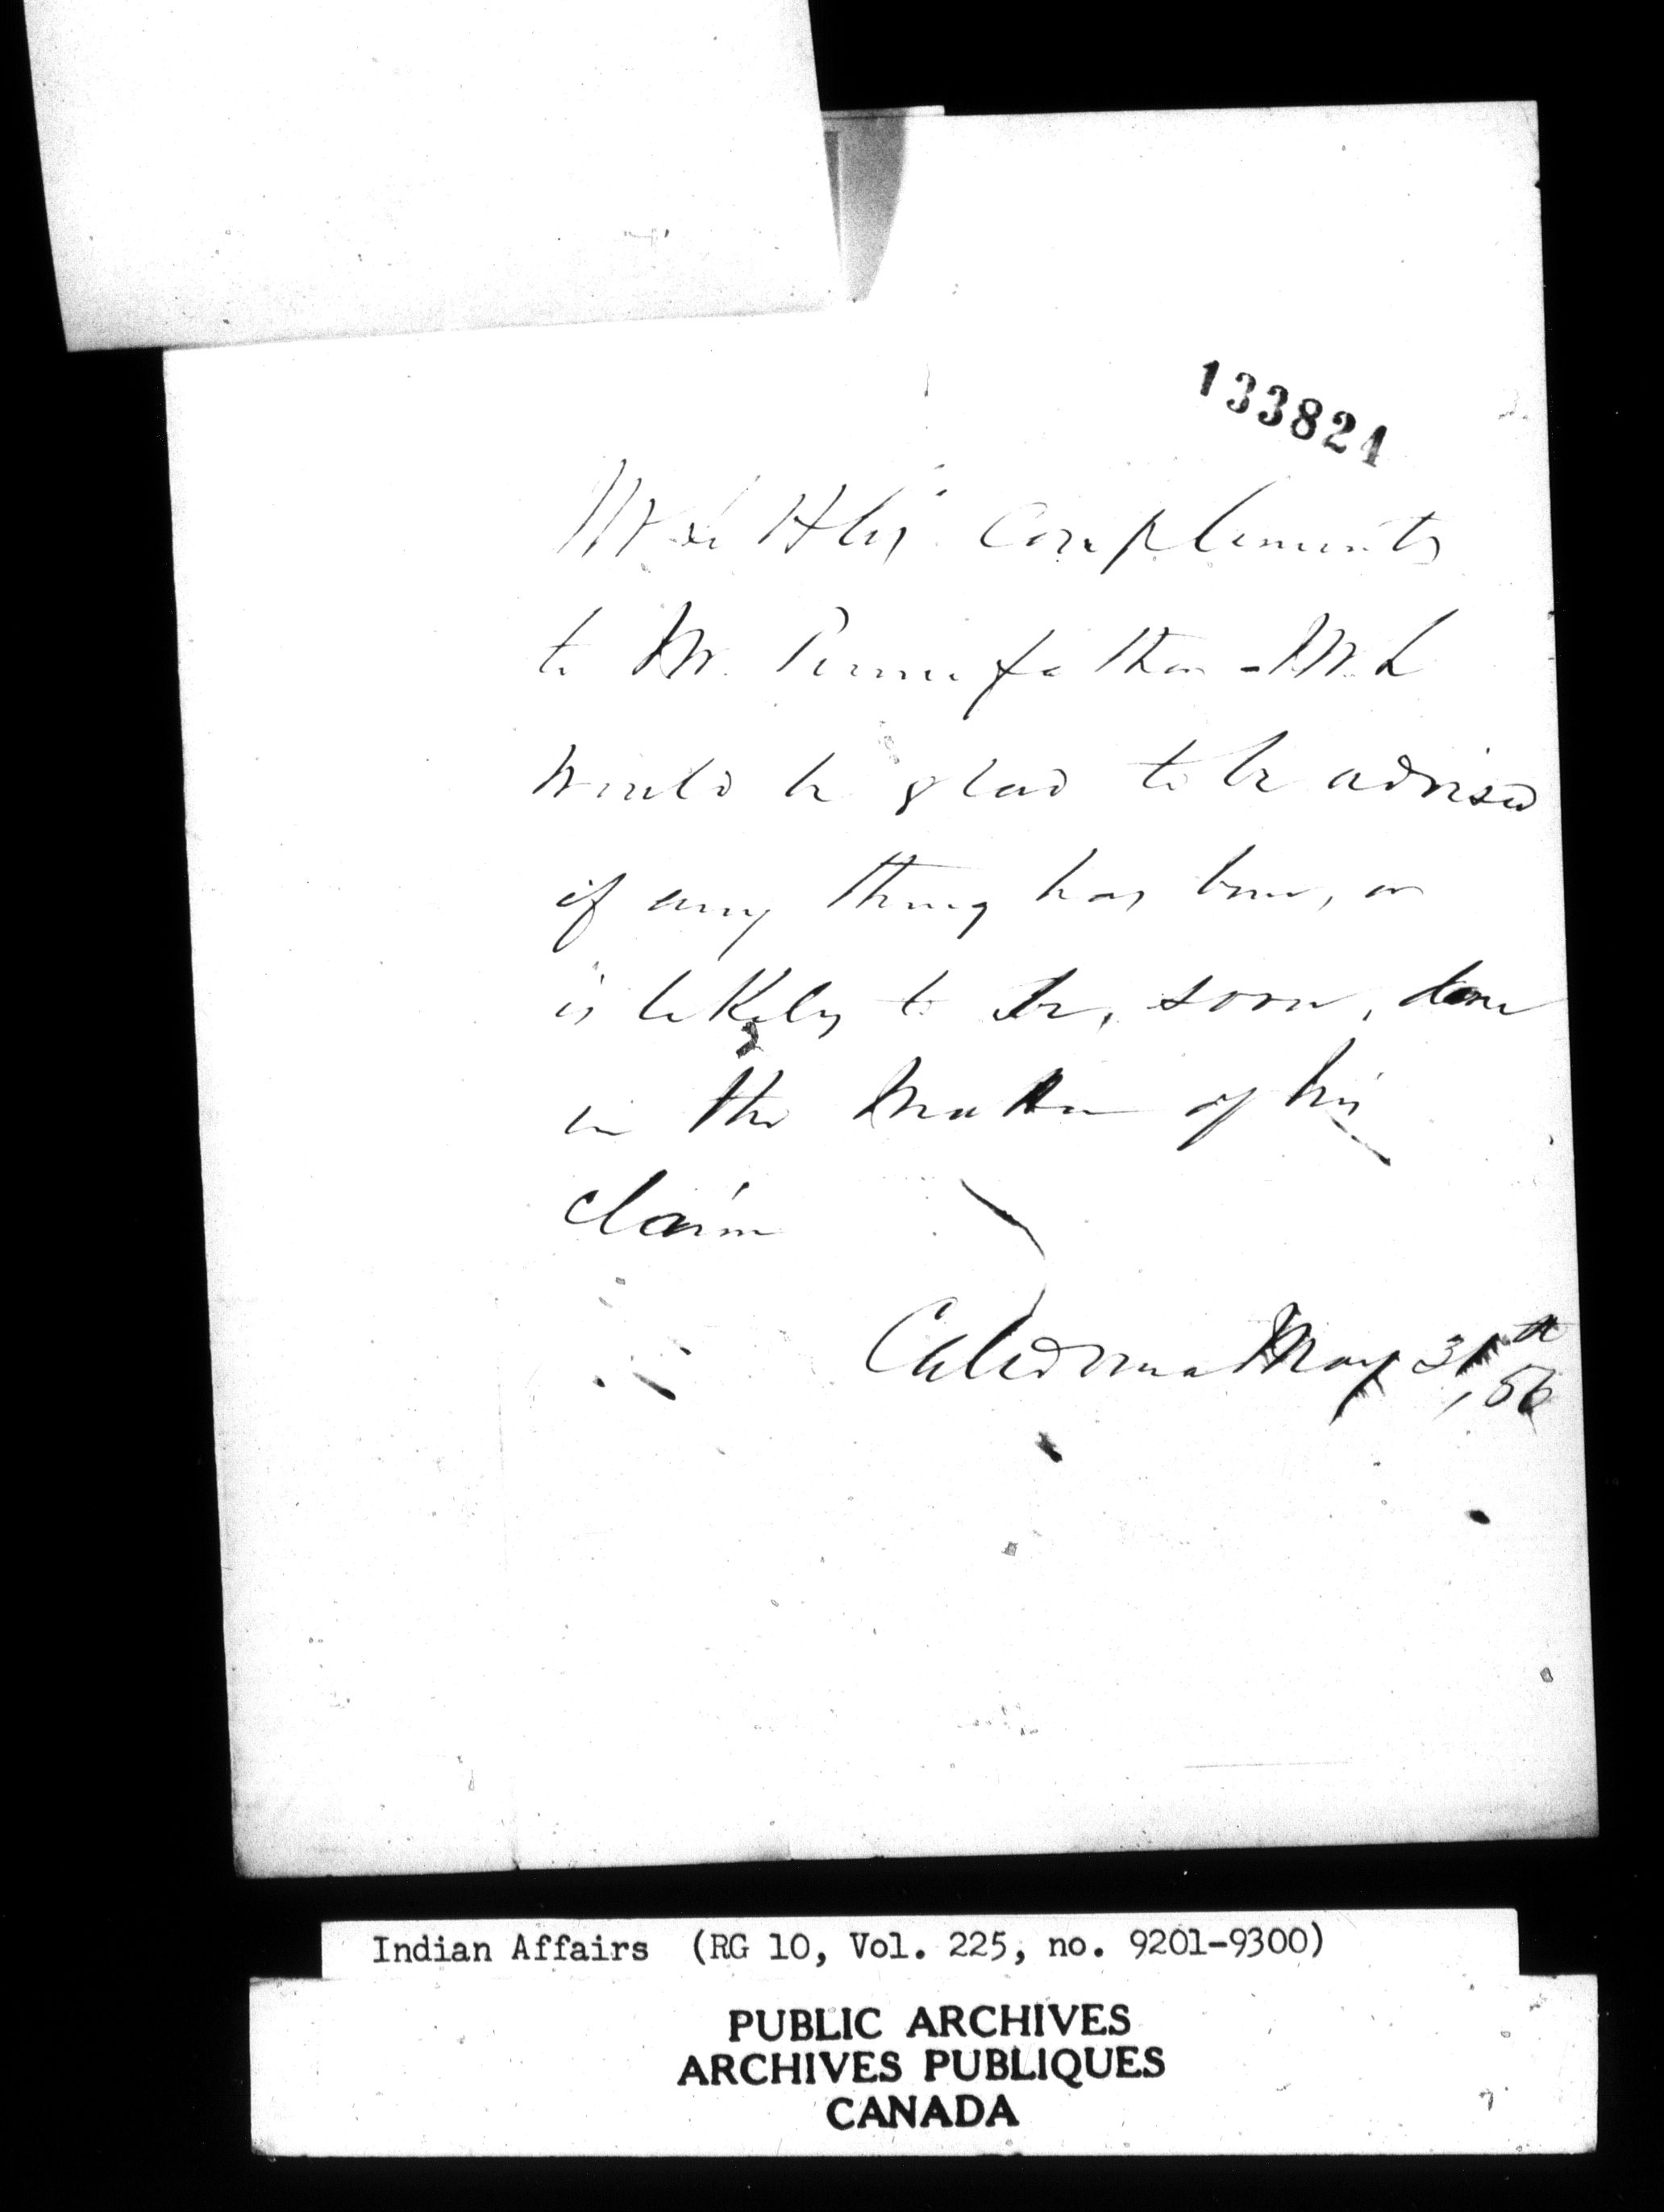 133821
Compliments
to Mr. Pennefather - Mr. L
would be glad to be advised
if any thing has been, or
is likely to be, soon, done
in the matter of his
claim
Caledonia May 31st
, 56
Indian Affairs (RG 10, Vol. 225, no. 9201-9300)
PUBLIC ARCHIVES
ARCHIVES PUBLIQUES
CANADA